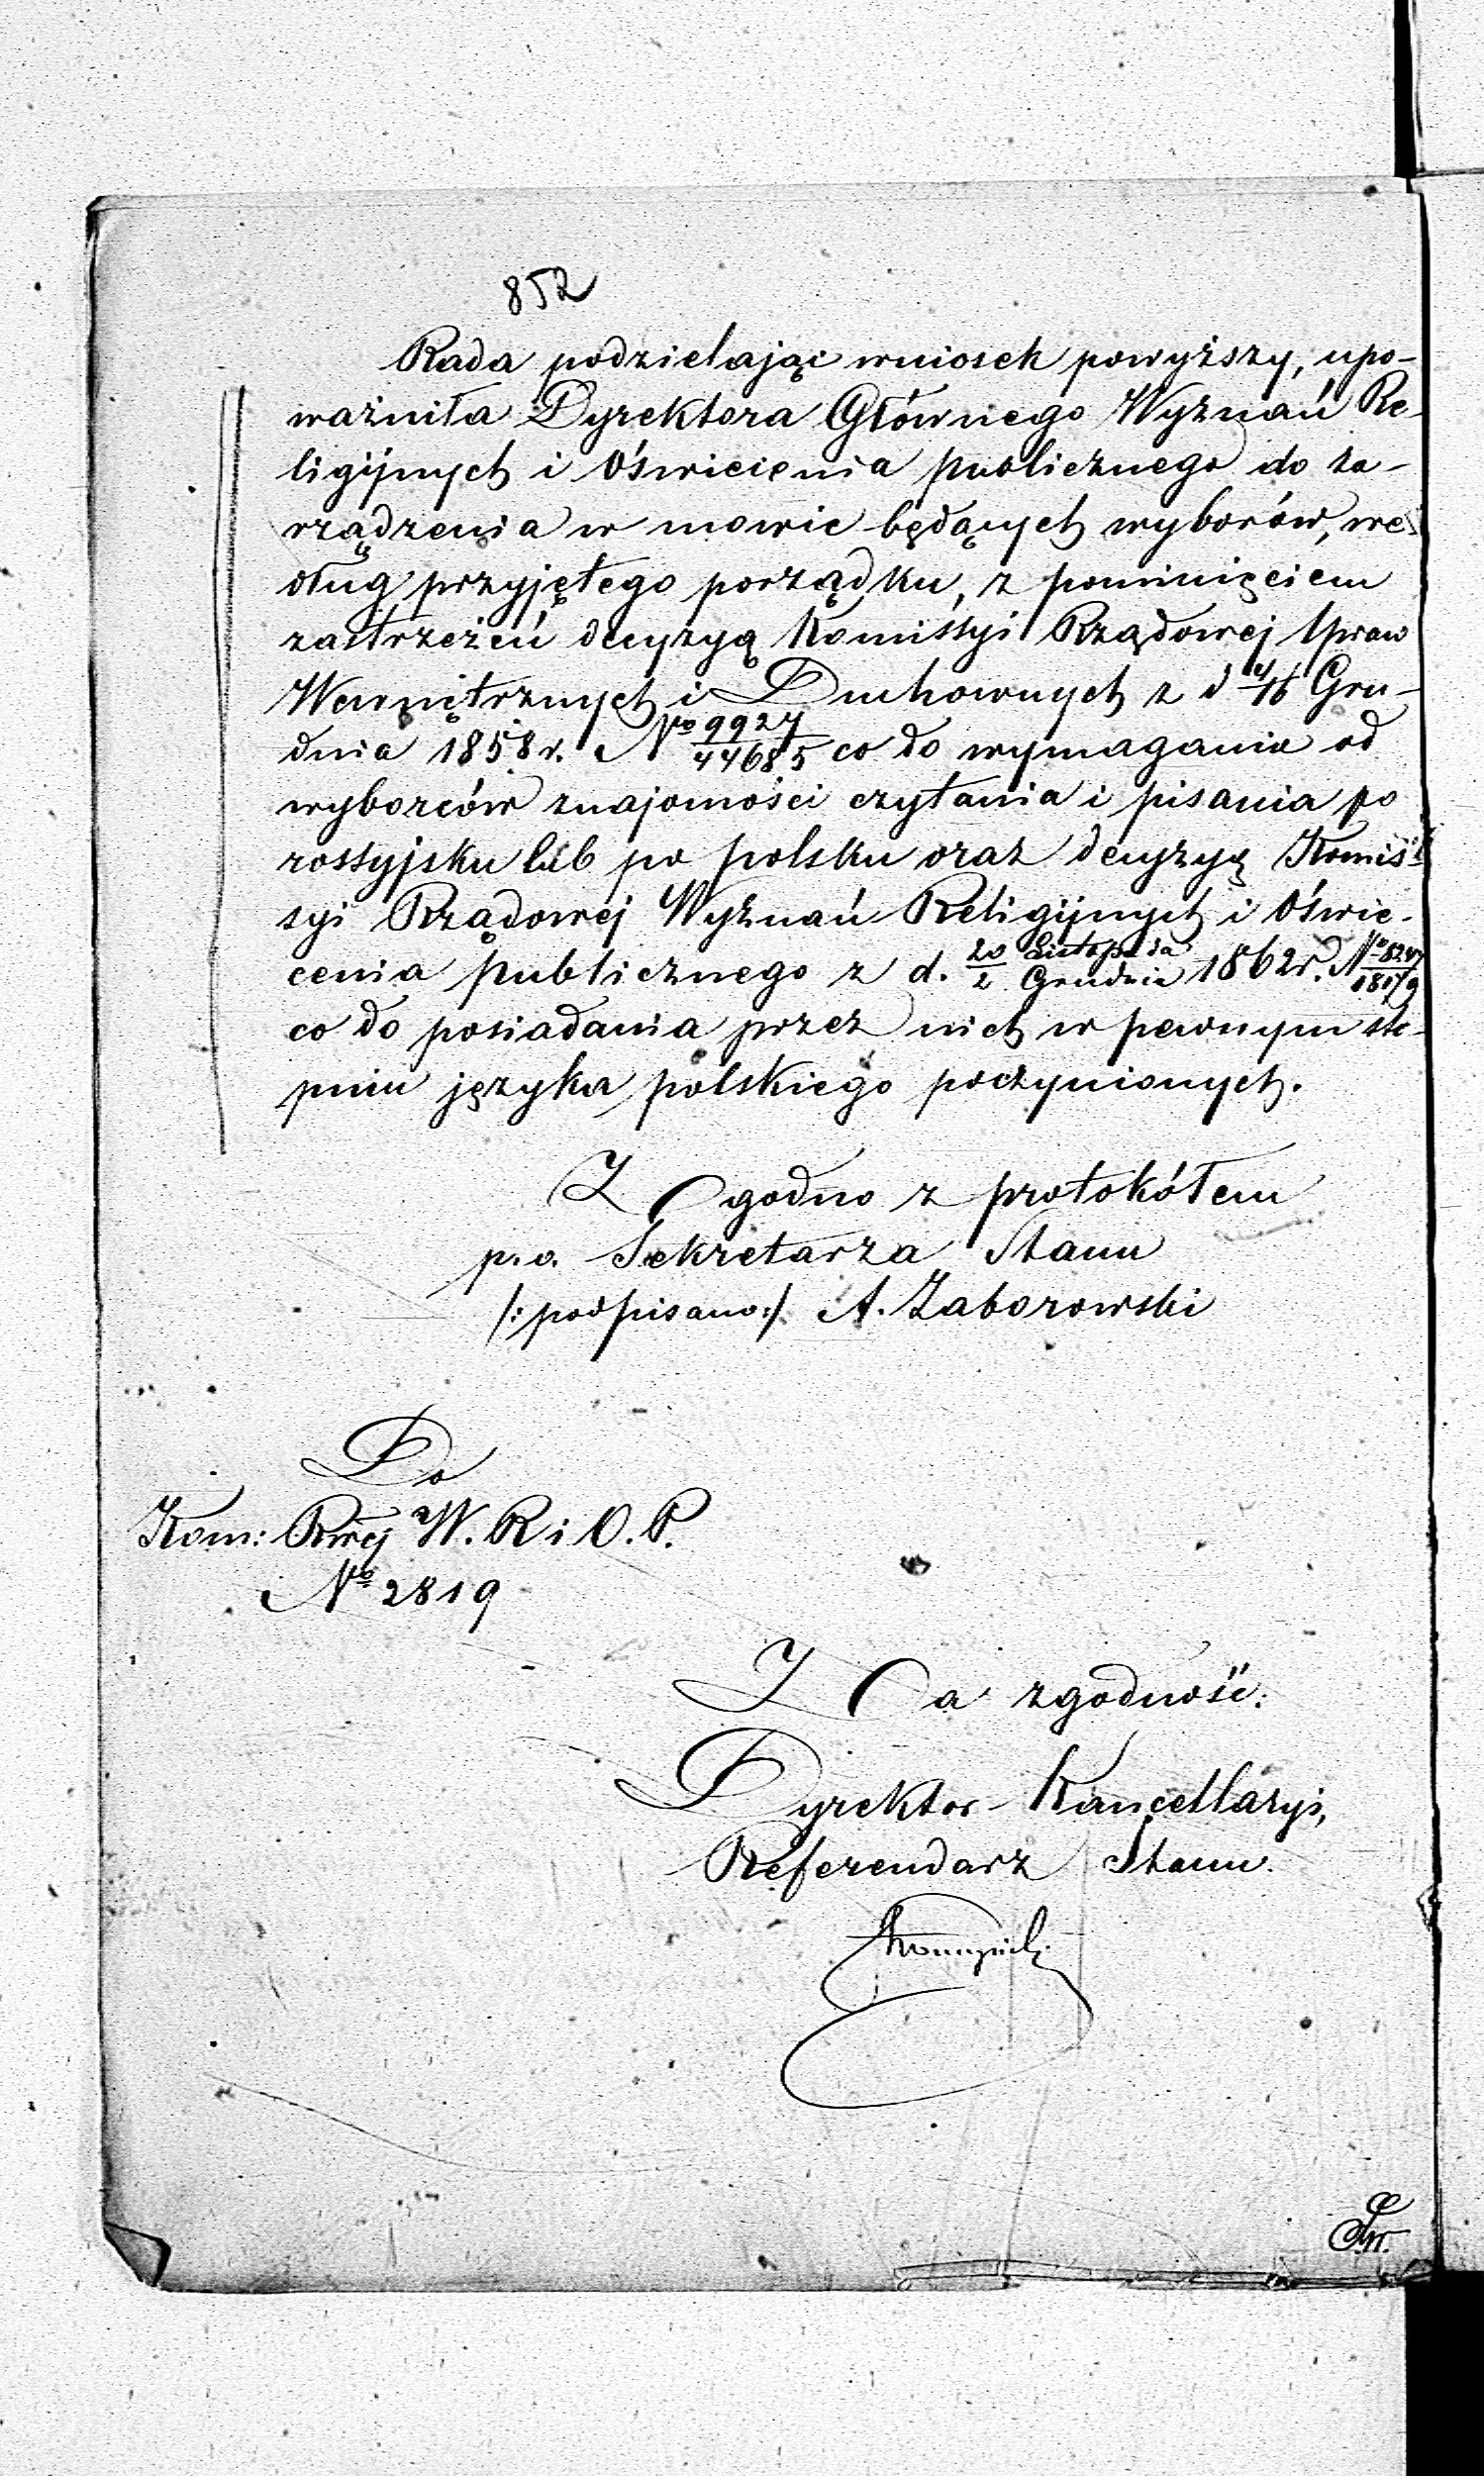 852
Rada podzielając wniosek powyższy, upo-
ważniła Dyrektora Głównego Wyznań Re-
ligijnych i Oświecienia publicznego do za-
rządzenia w mowie będących wyborów, we-
dług przyjętego porządku, z pominięciem
zastrzeżeń decyzyą Komissyi Rządowej Spraw
Wewnętrznych i Duchownych z d 4/16 Gru-
dnia 1858 r. No 9927/44685 co do wymagania od
wyborców znajomości czytania i pisania po
rossyjsku lub po polsku oraz decyzyą Komis-
syi Rządowej Wyznań Religijnych i Oświe-
cenia publicznego z d. 20 Listopada/2 Grudnia 1862 r. No
co do posiadania przez nich w pewnym sto-
pniu języka polskiego poczynionych.
Zgodno z protokółem
p. o. Sekretarza Stanu
/:podpisano:/ A. Zaborowski
Do
Kom: Rwej W. R i O. P.
No 2819
Za zgodność:
Dyrektor Kancellaryi,
Referendarz Stanu.